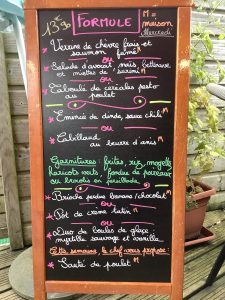 13€90 FORMULE M = maison
Mercredi
Verrine de chèvre frais et
saumon fumé M
ou
Salade d'avocat, noix, betterave
et miettes de surimi M
ou
Taboulé de céréales pesto
au poulet
Emincé de dinde, sauce chili M
ou
Cabillaud
au beurre d'anis M
Garnitures: frites, riz, mogette
haricots verts, fondue de poireaux
ou en persillade M
Brioche perdue banane/chocolat M
ou
Pot de crème tatin M
ou
Duo de boules de glace,
myrtille sauvage et vanille
Cette semaine, le chef vous propose:
Sauté de poulet M